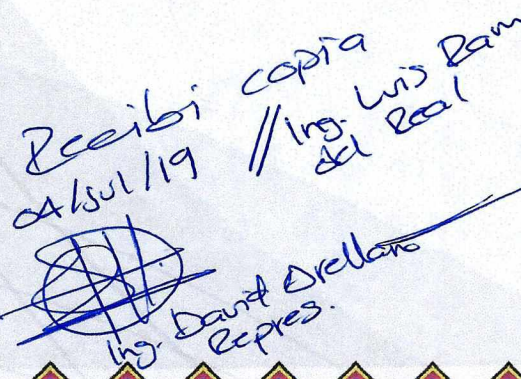 Recibi copia
04/jul/19 // Ing. Luis Ram
del Real
Ing. David Orellano
Repres.